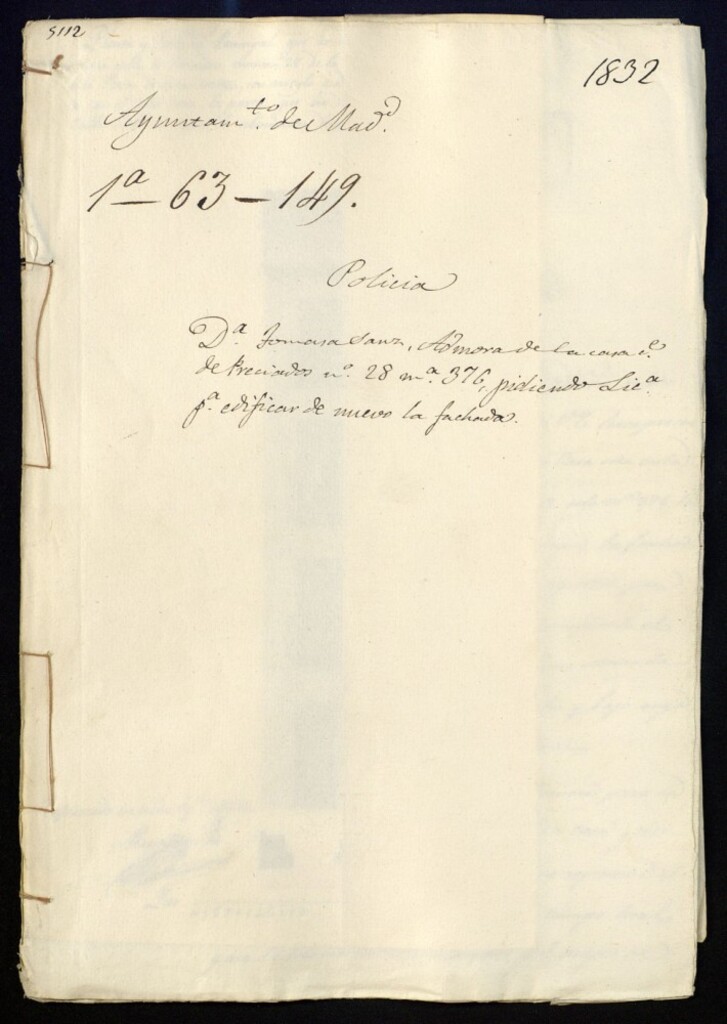 5112
1832
Ayuntam.to de Mad.d
1a — 63 — 149.
Policia
D.a Tomasa Sanz, Admora de la casa c.e
de Preciados n.o 28 m.a 376, pidiendo Lic.a
p.a edificar de nuevo la fachada.